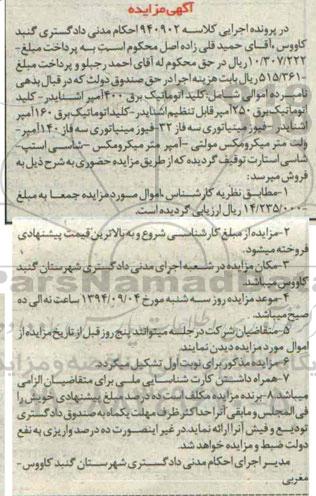 آگهی مزایده
در پرونده اجرایی کلاسه ۹۴۰۹۰۲ احکام مدنی دادگستری گنبد
کاووس ،آقـای حمید قلی زاده اصل محکوم اسـت بـه پرداخت مبلغ
۱۰/۳۰۷/۲۲۲ ریال در حق محکوم له آقای احمد رجبلو و پرداخت مبلغ
۵۱۵/۳۶۱ ریال بابت هزینه اجرا در حق صندوق دولت که در قبال بدهی
نامبرده اموالی شـامل: کلید اتوماتیک برق ۴۰۰ آمپر اشـنایدر- کلید
اتوماتیک برق ۲۵۰ آمپر قابل تنظیم اشنایدر-کلید اتوماتیک برق ۱۶۰ آمپر
اشنایدر- فیوز مینیاتوری سه فاز ۳۲-فیوز مینیاتوری سه فاز ۱۴۰ آمپر-
ولت متر میکرومکس مولتی -آمپر متر میکرومکس -شاسی استپ-
شاسی استارت توقیف گردیده که از طریق مزایده حضوری به شرح ذیل به
فروش میرسد:
۱-مطابق نظریه کارشناس ،اموال مـورد مزایده جمعـا به مبلغ
۱۴/۲۳۵/۰۰۰ ریال ارزیابی گردیده است.
۲-مزایده از مبلغ کارشناسی شروع و به بالاترین قیمت پیشنهادی
فروخته میشود.
۳-مکان مزایده در شـعبه اجرای مدنی دادگستری شهرستان گنبد
کاووس میباشد.
۴-موعد مزایده روز سه شنبه مورخ ۱۳۹۴/۰۹/۰۴ ساعت نه الی ده
صبح میباشد.
۵-متقاضیان شرکت در جلسه میتوانند پنج روز قبل از تاریخ مزایده از
اموال مورد مزایده دیدن نمایند.
۶-مزایده مذکور برای نوبت اول تشکیل میگردد.
۷-همراه داشتن کارت شناسایی ملی برای متقاضیان الزامی
میباشد.۸-برنده مزایده مکلف است ده درصد مبلغ پیشنهادی خویش را
فی المجلس و مابقی آنرا حداکثر ظرف مهلت یکماه به صندوق دادگستری
تودیع و فیش آنرا ارائه نماید.در غیر اینصورت ده درصد واریزی به نفع
دولت ضبط و مزایده تجدید خواهد شد.
مدیـر اجرای احکام مدنی دادگسـتری شهرسـتان گنبد کاووس-
معربی
ParsNamadData